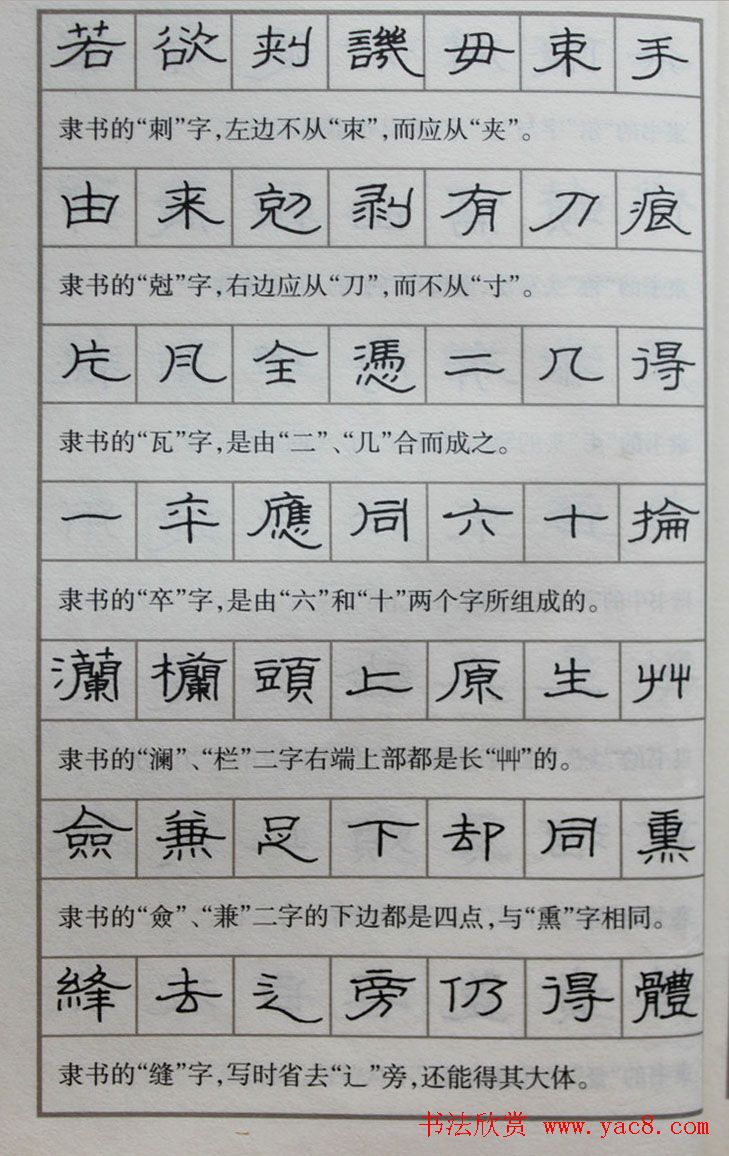 若欲刾譏毋束手
隶书的“刺”字，左边不从“朿”，而应从“夹”。
由来剋剥有刀痕
隶书的“尅”字，右边应从“刀”，而不从“寸”。
片瓦全憑二几得
隶书的“瓦”字，是由“二”、“几”合而成之。
一卒應同六十掄
隶书的“卒”字，是由“六”和“十”两个字所组成的。
瀾欄頭上原生艸
隶书的“澜”、“栏”二字右端上部都是长“艸”的。
僉兼足下却同熏
隶书的“僉”、“兼”二字的下边都是四点，与“熏”字相同。
綘去辶旁仍得體
隶书的“缝”字，写时省去“辶”旁，还能得其大体。
书法欣赏 www.yac8.com